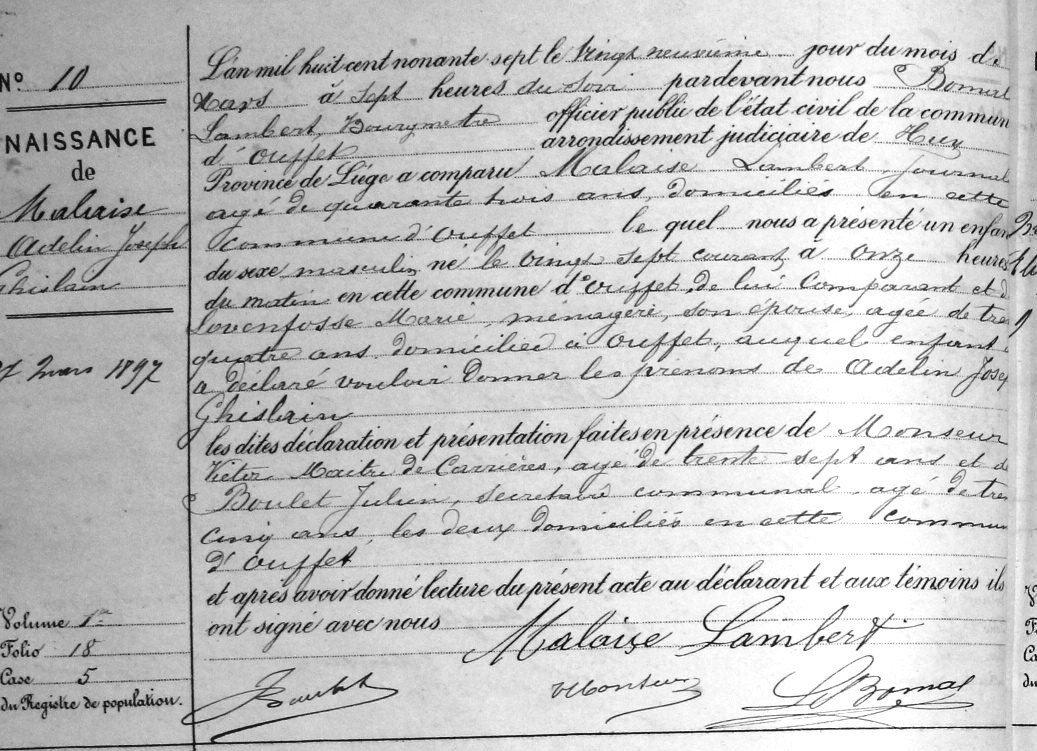 N° 10
NAISSANCE
de
Malaise
Adelin Joseph
Ghislain
27 mars 1897
Volume 1er
Folio 18
Case 5
du Registre de population.
L'an mil huit cent nonante sept le vingt neuvième jour du mois de
Mars à sept heures du soir pardevant nous Bomal
Lambert, Bourgmestre officier public de l'état civil de la commun
d'Ouffet arrondissement judiciaire de Huy
Province de Liége a comparu Malaise Lambert Journal
agé de quarante trois ans, domiciliés en cette
commune d'Ouffet le quel nous a présenté un enfan
du sexe masculin né le vingt sept courant à onze heures
du matin en cette commune d'Ouffet, de lui comparant et d
Lovenfosse Marie, ménagère, son épouse, agée de tre
quatre ans domiciliée à Ouffet, auquel enfant
a déclaré vouloir donner les prénoms de Adelin Josep
Ghislain
les dites déclaration et présentation faites en présence de Monseur
Victor Maitre de Carrières, agé de trente sept ans et d
Boulet Julien, secretaire communal, agé de tre
cinq ans, les deux domiciliés en cette commun
d'Ouffet
et après avoir donné lecture du présent acte au déclarant et aux témoins ils
ont signé avec nous
Malaise Lambert
JBoulet VMonseur LBomal